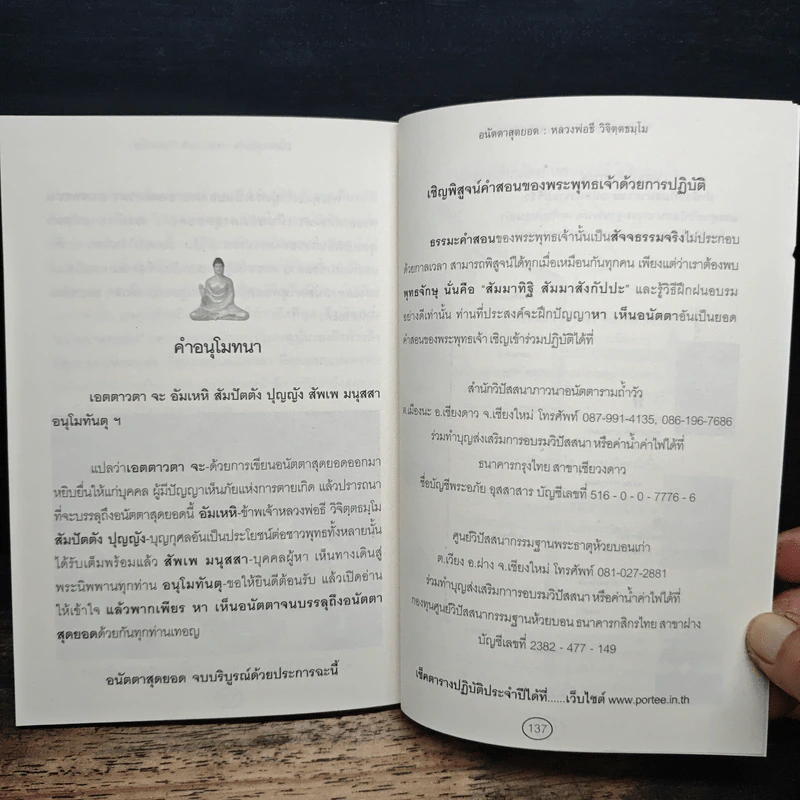 คำอนุโมทนา
เอตตาวตา จะ อัมเหหิ สัมปัตตัง ปุญญัง สัพเพ มนุสสา
อนุโมทันตุ ฯ
แปลว่าเอตตาวตา จะ-ด้วยการเขียนอนัตตาสุดยอดออกมา
หยิบยื่นให้แก่บุคคล ผู้มีปัญญาเห็นภัยแห่งการตายเกิด แล้วปรารถนา
ที่จะบรรลุถึงอนัตตาสุดยอดนี้ อัมเหหิ-ข้าพเจ้าหลวงพ่อธี วิจิตฺตธมฺโม
สัมปัตตัง ปุญญัง-บุญกุศลอันเป็นประโยชน์ต่อชาวพุทธทั้งหลายนั้น
ได้รับเต็มพร้อมแล้ว สัพเพ มนุสสา-บุคคลผู้หา เห็นทางเดินสู่
พระนิพพานทุกท่าน อนุโมทันตุ-ขอให้ยินดีต้อนรับ แล้วเปิดอ่าน
ให้เข้าใจ แล้วพากเพียร หา เห็นอนัตตาจนบรรลุถึงอนัตตา
สุดยอดด้วยกันทุกท่านเทอญ
อนัตตาสุดยอด จบบริบูรณ์ด้วยประการฉะนี้
อนัตตาสุดยอด : หลวงพ่อธี วิจิตฺตธมฺโม
เชิญพิสูจน์คำสอนของพระพุทธเจ้าด้วยการปฏิบัติ
ธรรมะคำสอนของพระพุทธเจ้านั้นเป็นสัจจธรรมจริงไม่ประกอบ
ด้วยกาลเวลา สามารถพิสูจน์ได้ทุกเมื่อเหมือนกันทุกคน เพียงแต่ว่าเราต้องพบ
พุทธจักษุ นั่นคือ "สัมมาทิฐิ สัมมาสังกัปปะ" และรู้วิธีฝึกฝนอบรม
อย่างดีเท่านั้น ท่านที่ประสงค์จะฝึกปัญญาหา เห็นอนัตตาอันเป็นยอด
คำสอนของพระพุทธเจ้า เชิญเข้าร่วมปฏิบัติได้ที่
สำนักวิปัสสนาภาวนาอนัตตารามถ้ำวัว
ต.เมืองนะ อ.เชียงดาว จ.เชียงใหม่ โทรศัพท์ 087-991-4135, 086-196-7686
ร่วมทำบุญส่งเสริมการอบรมวิปัสสนา หรือค่าน้ำค่าไฟได้ที่
ธนาคารกรุงไทย สาขาเชียงดาว
ชื่อบัญชีพระอภัย อุสสาสาร บัญชีเลขที่ 516 - 0 - 0 - 7776 - 6
ศูนย์วิปัสสนากรรมฐานพระธาตุห้วยบอนเก่า
ต.เวียง อ.ฝาง จ.เชียงใหม่ โทรศัพท์ 081-027-2881
ร่วมทำบุญส่งเสริมการอบรมวิปัสสนา หรือค่าน้ำค่าไฟได้ที่
กองทุนศูนย์วิปัสสนากรรมฐานห้วยบอน ธนาคารกสิกรไทย สาขาฝาง
บัญชีเลขที่ 2382 - 477 - 149
เช็คตารางปฏิบัติประจำปีได้ที่......เว็บไซต์ www.portee.in.th
137